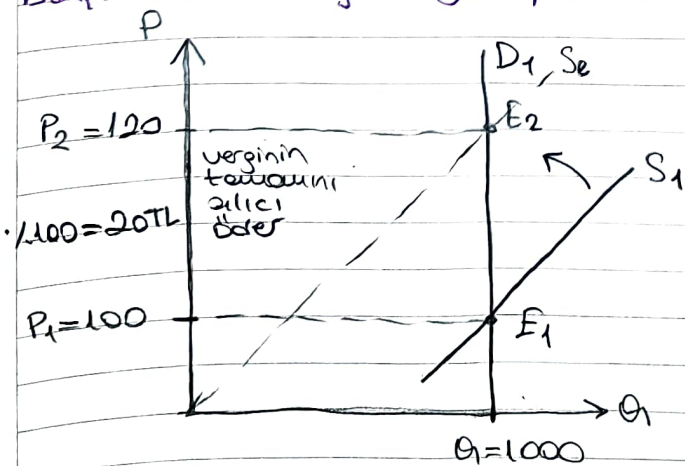 P
D1, Se
P2 = 120
E2
verginin
tamamını
alıcı
öder
S1
%100=20TL
P1=100
E1
Q
Q=1000